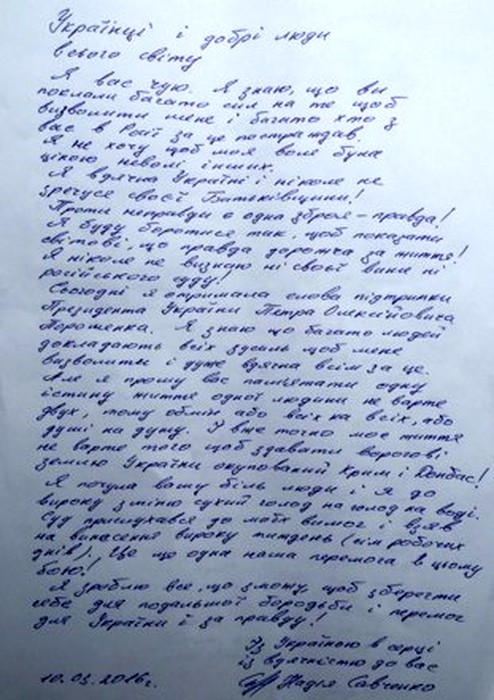 Українці і добрі люди
всього світу
Я вас чую. Я знаю, що ви
поклали багато сил на те щоб
визволити мене і багато хто з
вас в Росії за це постраждав.
Я не хочу щоб моя воля була
ціною неволі інших.
Я вдячна Україні і ніколи не
зречуся своєї Батьківщини!
Проти неправди є одна зброя – правда!
Я буду боротися так, щоб показати
світові, що правда дорожча за життя!
Я ніколи не визнаю ні своєї вини ні
російського суду!
Сьогодні я отримала слова підтримки
Президента України Петра Олексійовича
Порошенка. Я знаю що багато людей
докладають всіх зусиль щоб мене
визволити і дуже вдячна всім за це.
Але я прошу вас пам'ятати одну
істину життя одної людини не варте
двух, тому обмін або всіх на всіх, або
душі на душу. І вже точно моє життя
не варте того щоб здавати ворогові
землю України окупований Крим і Донбас!
Я почула вашу біль люди і я до
вироку зміню сухий голод на голод на воді.
Суд прислухався до моїх вимог і взяв
на винесення вироку тиждень (сім робочих
днів). Це ще одна наша перемога в цьому
бою!
Я зроблю все, що зможу, щоб зберегти
себе для подальшої боротьби і перемог
для України й за правду!
Із Україною в серці
із вдячністю до вас
10.03.2016г. Надія Савченко